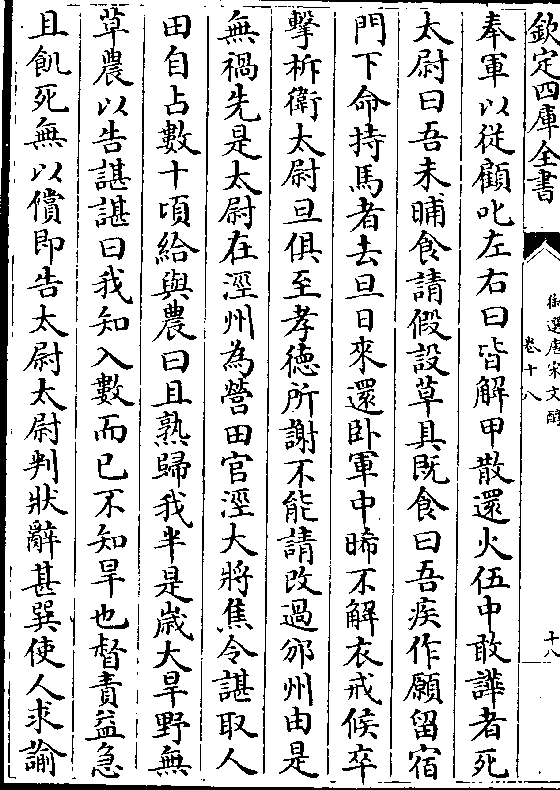 欽定四庫全書
御選唐宋文醇
卷十八
十八
奉軍以從顧叱左右曰皆解甲散還火伍中敢譁者死
太尉曰吾未晡食請假設草具既食曰吾疾作願留宿
門下命持馬者去旦日來還卧軍中晞不解衣戒候卒
擊柝衛太尉旦俱至孝徳所謝不能請改過邠州由是
無禍先是太尉在涇州為營田官涇大將焦令諶取人
田自占數十頃給與農曰且熟歸我半是嵗大旱野無
草農以告諶諶曰我知入數而已不知旱也督責益急
且飢死無以償即告太尉太尉判狀辭甚巽使人求諭